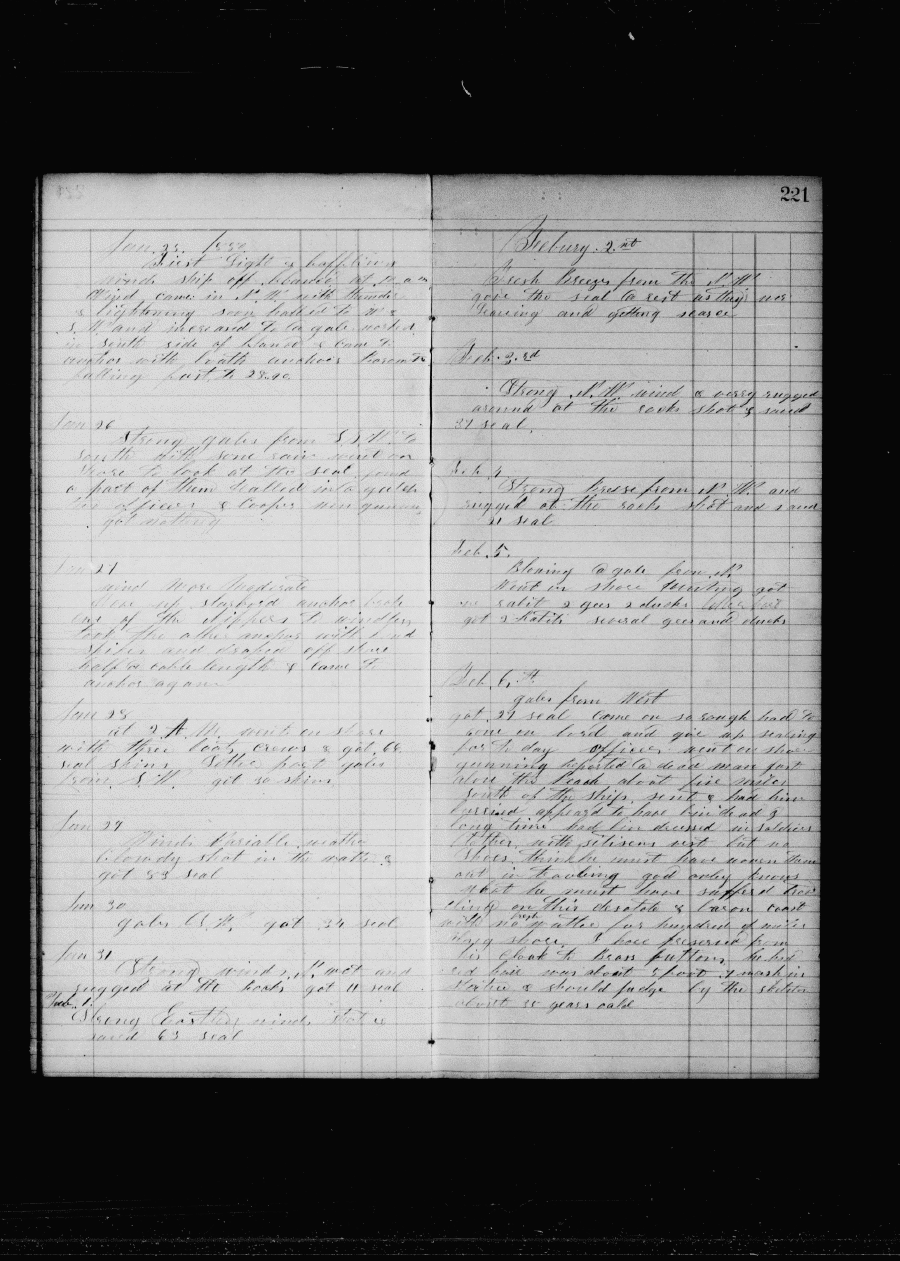 Jan 25. 1880
First Light & baffling
winds ship off Island at
Wind came in N. W. with thunder
& lightening soon hailed to W &
S. W. and increased to a gale worked
in south side of Island & came to
anchor with boath anchors baromtr
falling fast to 28.90
Jan 26
Strong gales from S S W to
south with some rain went on
shore to look at the seal found
a part of them hailed into gulch
officers & Cooper gunning
got nothing
Jan 27
wind More Moderate
hove up starbord anchor broke
one of the nippers to windlass
took the other anchor with
and draped off shore
half a cable length & came to
anchor again
Jan 28
at 2 A. M. went on shore
with three boats crews & got 68
seal skins Latter part gales
from S. W. got 30 skins
Jan 29
Winds Variable weather
clowdy shot in the watter &
got 53 seal
Jan 30
gales S. W. got 34 seal
Jan 31
Strong winds N. West and
rugged at the rocks got 11 seal
Feb. 1.
Strong Easterly winds shot &
saved 63 seal
221
Febury. 2nt
Fresh Breezes from the N. W.
gave the seal a rest as they was
leaving and getting scarce
Feb. 3.rd
Strong N. W. wind & verry rugged
around at the rocks shot & saved
37 seal.
Feb 4
Strong breese from N. W. and
rugged at the rocks shot and saved
21 seal
Feb. 5.
Blowing a gale from N
Went in shore Hunting got
one rabit 2 gees 2 ducks
got 2 several gees and ducks
Feb. 6.
gales from West
got 27 seal Come on so rough had to
come on bord and give up sealing
for the day officers went on shore
gunning reported a dead man
the beach about five miles
south of the ship, sent & had him
appeared to have bin dead a
long time had bin dressed in soldiers
Clothes with sitisens vest but no
shoes, thinks he must have woren them
out in travling god ondly knows
what he must have suffered
on this desolate & baron coast
with no fresh watter for hundred of miles
along shore. I have preserved from
his Cloak to Brass buttons, he had
red hair was about 5 foot 7
& should judge by the skeleton
about 35 years oald